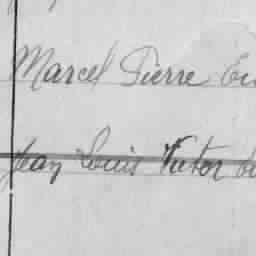 Marcel Pierre
Jean Louis Victor